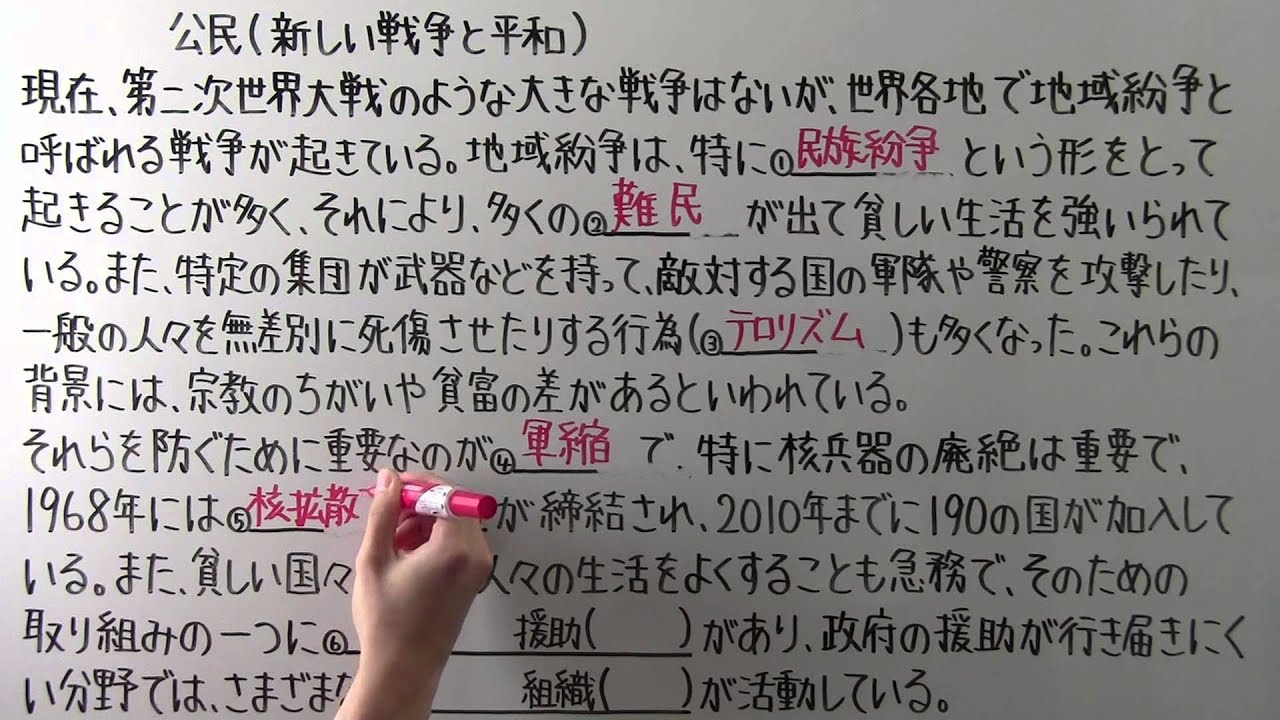 公民(新しい戦争と平和)
現在、第二次世界大戦のような大きな戦争はないが、世界各地で地域紛争と
呼ばれる戦争が起きている。地域紛争は、特に①民族紛争という形をとって
起きることが多く、それにより、多くの②難民が出て貧しい生活を強いられて
いる。また、特定の集団が武器などを持って、敵対する国の軍隊や警察を攻撃したり、
一般の人々を無差別に死傷させたりする行為(③テロリズム)も多くなった。これらの
背景には、宗教のちがいや貧富の差があるといわれている。
それらを防ぐために重要なのが④軍縮で、特に核兵器の廃絶は重要で、
1968年には⑤核拡散が締結され、2010年までに190の国が加入して
いる。また、貧しい国々人々の生活をよくすることも急務で、そのための
取り組みの一つに⑥ 援助( )があり、政府の援助が行き届きにく
い分野では、さまざまな 組織( )が活動している。